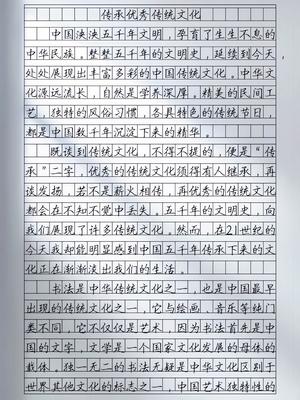 传承优秀传统文化
中国泱泱五千年文明，孕育了生生不息的
中华民族。整整五千年的文明史，延续到今天，
处处展现出丰富多彩的中国传统文化。中华文
化源远流长，自然是学界深厚。精美的民间工
艺，独特的风俗习惯，各具特色的传统节日，
都是中国数千年沉淀下来的精华。
既谈到传统文化，不得不提的，便是“传
承”二字，优秀的传统文化须得有人继承，再
谈发扬，若不是薪火相传，再优秀的传统文化
都会在不知不觉中丢失。五千年的文明史，向
我们展现了许多传统文化。然而，在21世纪的
今天我却能明显感到中国五千年传承下来的文
化正在渐渐淡出我们的生活。
书法是中华传统文化之一，也是中国最早
出现的传统文化之一，它与绘画、音乐等纯门
类不同，它不仅仅是艺术，因为书法首先是中
国的文字，文学是一个国家文化发展的母体的
载体。独一无二的书法无疑是中华文化区别于
世界其他文化的标志之一，中国艺术独特性的